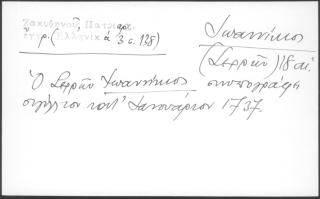 Ζακυθηνοῦ, Πατριαρ.
ἔγγρ. (Ἑλληνικά 3 σ. 138)
Ἰωαννίκιος
(Σερρῶν) 18 αἰ.
Ὁ Σερρῶν Ἰωαννίκιος συνυπογράφει
σιγίλιον τοῦ Ἰανουαρίου 1737.